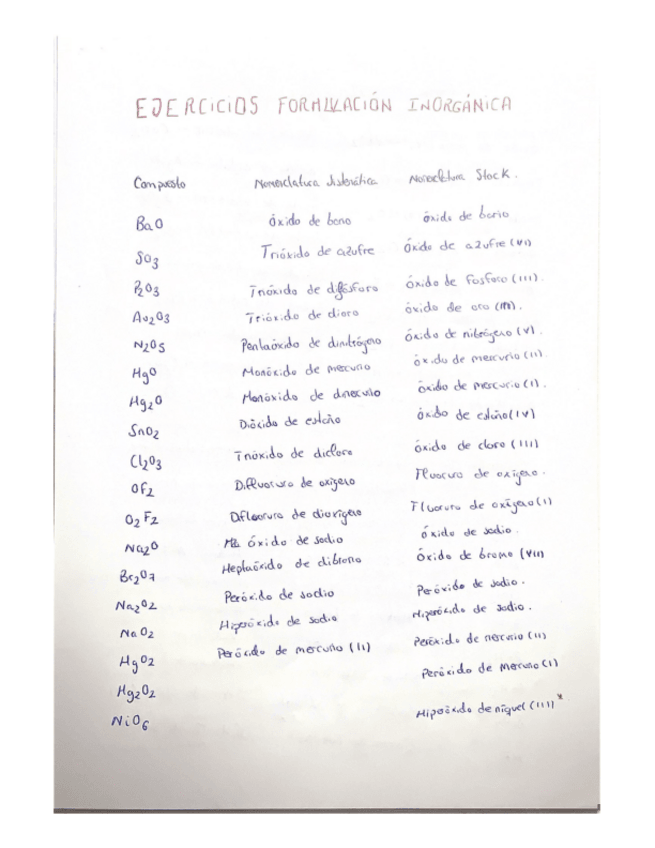 EJERCICIOS FORMULACIÓN INORGÁNICA
Compuesto Nomenclatura sistemática Nomenclatura Stock.
BaO óxido de bario óxido de bario
SO3 Trióxido de azufre óxido de azufre (VI)
P2O3 Trióxido de difósforo óxido de fosforo (III).
Au2O3 Trióxido de dioro óxido de oro (III).
N2O5 Pentaóxido de dinitrógeno óxido de nitrógeno (V).
HgO Monóxido de mercurio óxido de mercurio (II).
Hg2O Monóxido de dimercurio óxido de mercurio (I).
SnO2 Dióxido de estaño óxido de estaño (IV)
Cl2O3 Trióxido de dicloro óxido de cloro (III)
OF2 Difluoruro de oxígeno Fluoruro de oxígeno.
O2F2 Difluoruro de dioxígeno Fluoruro de oxígeno (I)
Na2O óxido de sodio óxido de sodio.
Br2O7 Heptaóxido de dibromo óxido de bromo (VII)
Na2O2 Peróxido de sodio Peróxido de sodio.
NaO2 Hiperóxido de sodio Hiperóxido de sodio.
HgO2 Peróxido de mercurio (II) Peróxido de mercurio (II)
Hg2O2 Peróxido de mercurio (I)
NiO6 Hiperóxido de niquel (III)*